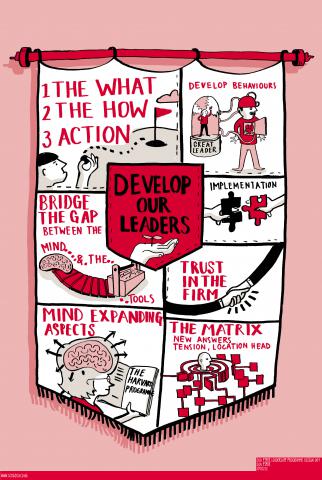 1 THE WHAT
2 THE HOW
3 ACTION
DEVELOP BEHAVIOURS
GREAT
LEADER
DEVELOP
OUR
LEADERS
IMPLEMENTATION
BRIDGE
THE GAP
BETWEEN THE
MIND
& THE
TOOLS
TRUST
IN THE
FIRM
MIND EXPANDING
ASPECTS
THE
HARVARD
PROGRAMME
THE MATRIX
NEW ANSWERS,
TENSION, LOCATION HEAD